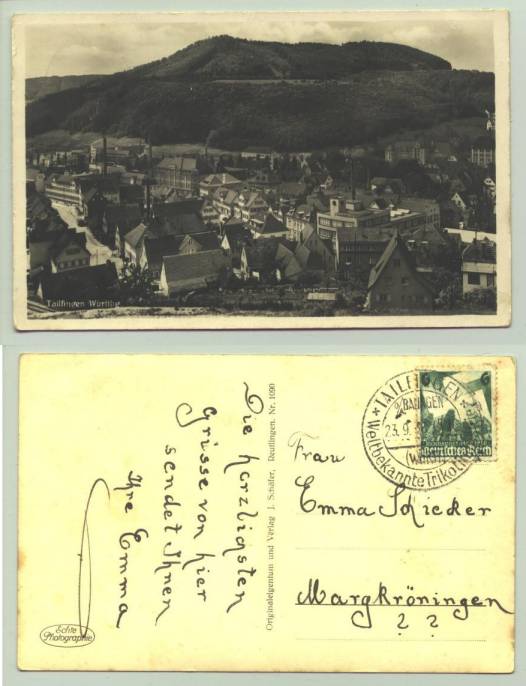 Tailfingen Württbg.
Die herzligsten
Grüsse von hier
sendet Ihnen
Ihre Emma
Echte
Photographie
Originaleigentum und Verlag J. Schäfer, Reutlingen. Nr. 1090
TAILFINGEN
BALINGEN
23. 9.
(WÜRTT
Weltbekannte Trikot
6 6
Deutsches Reich
Frau
Emma Schieker
Margkröningen
? ?